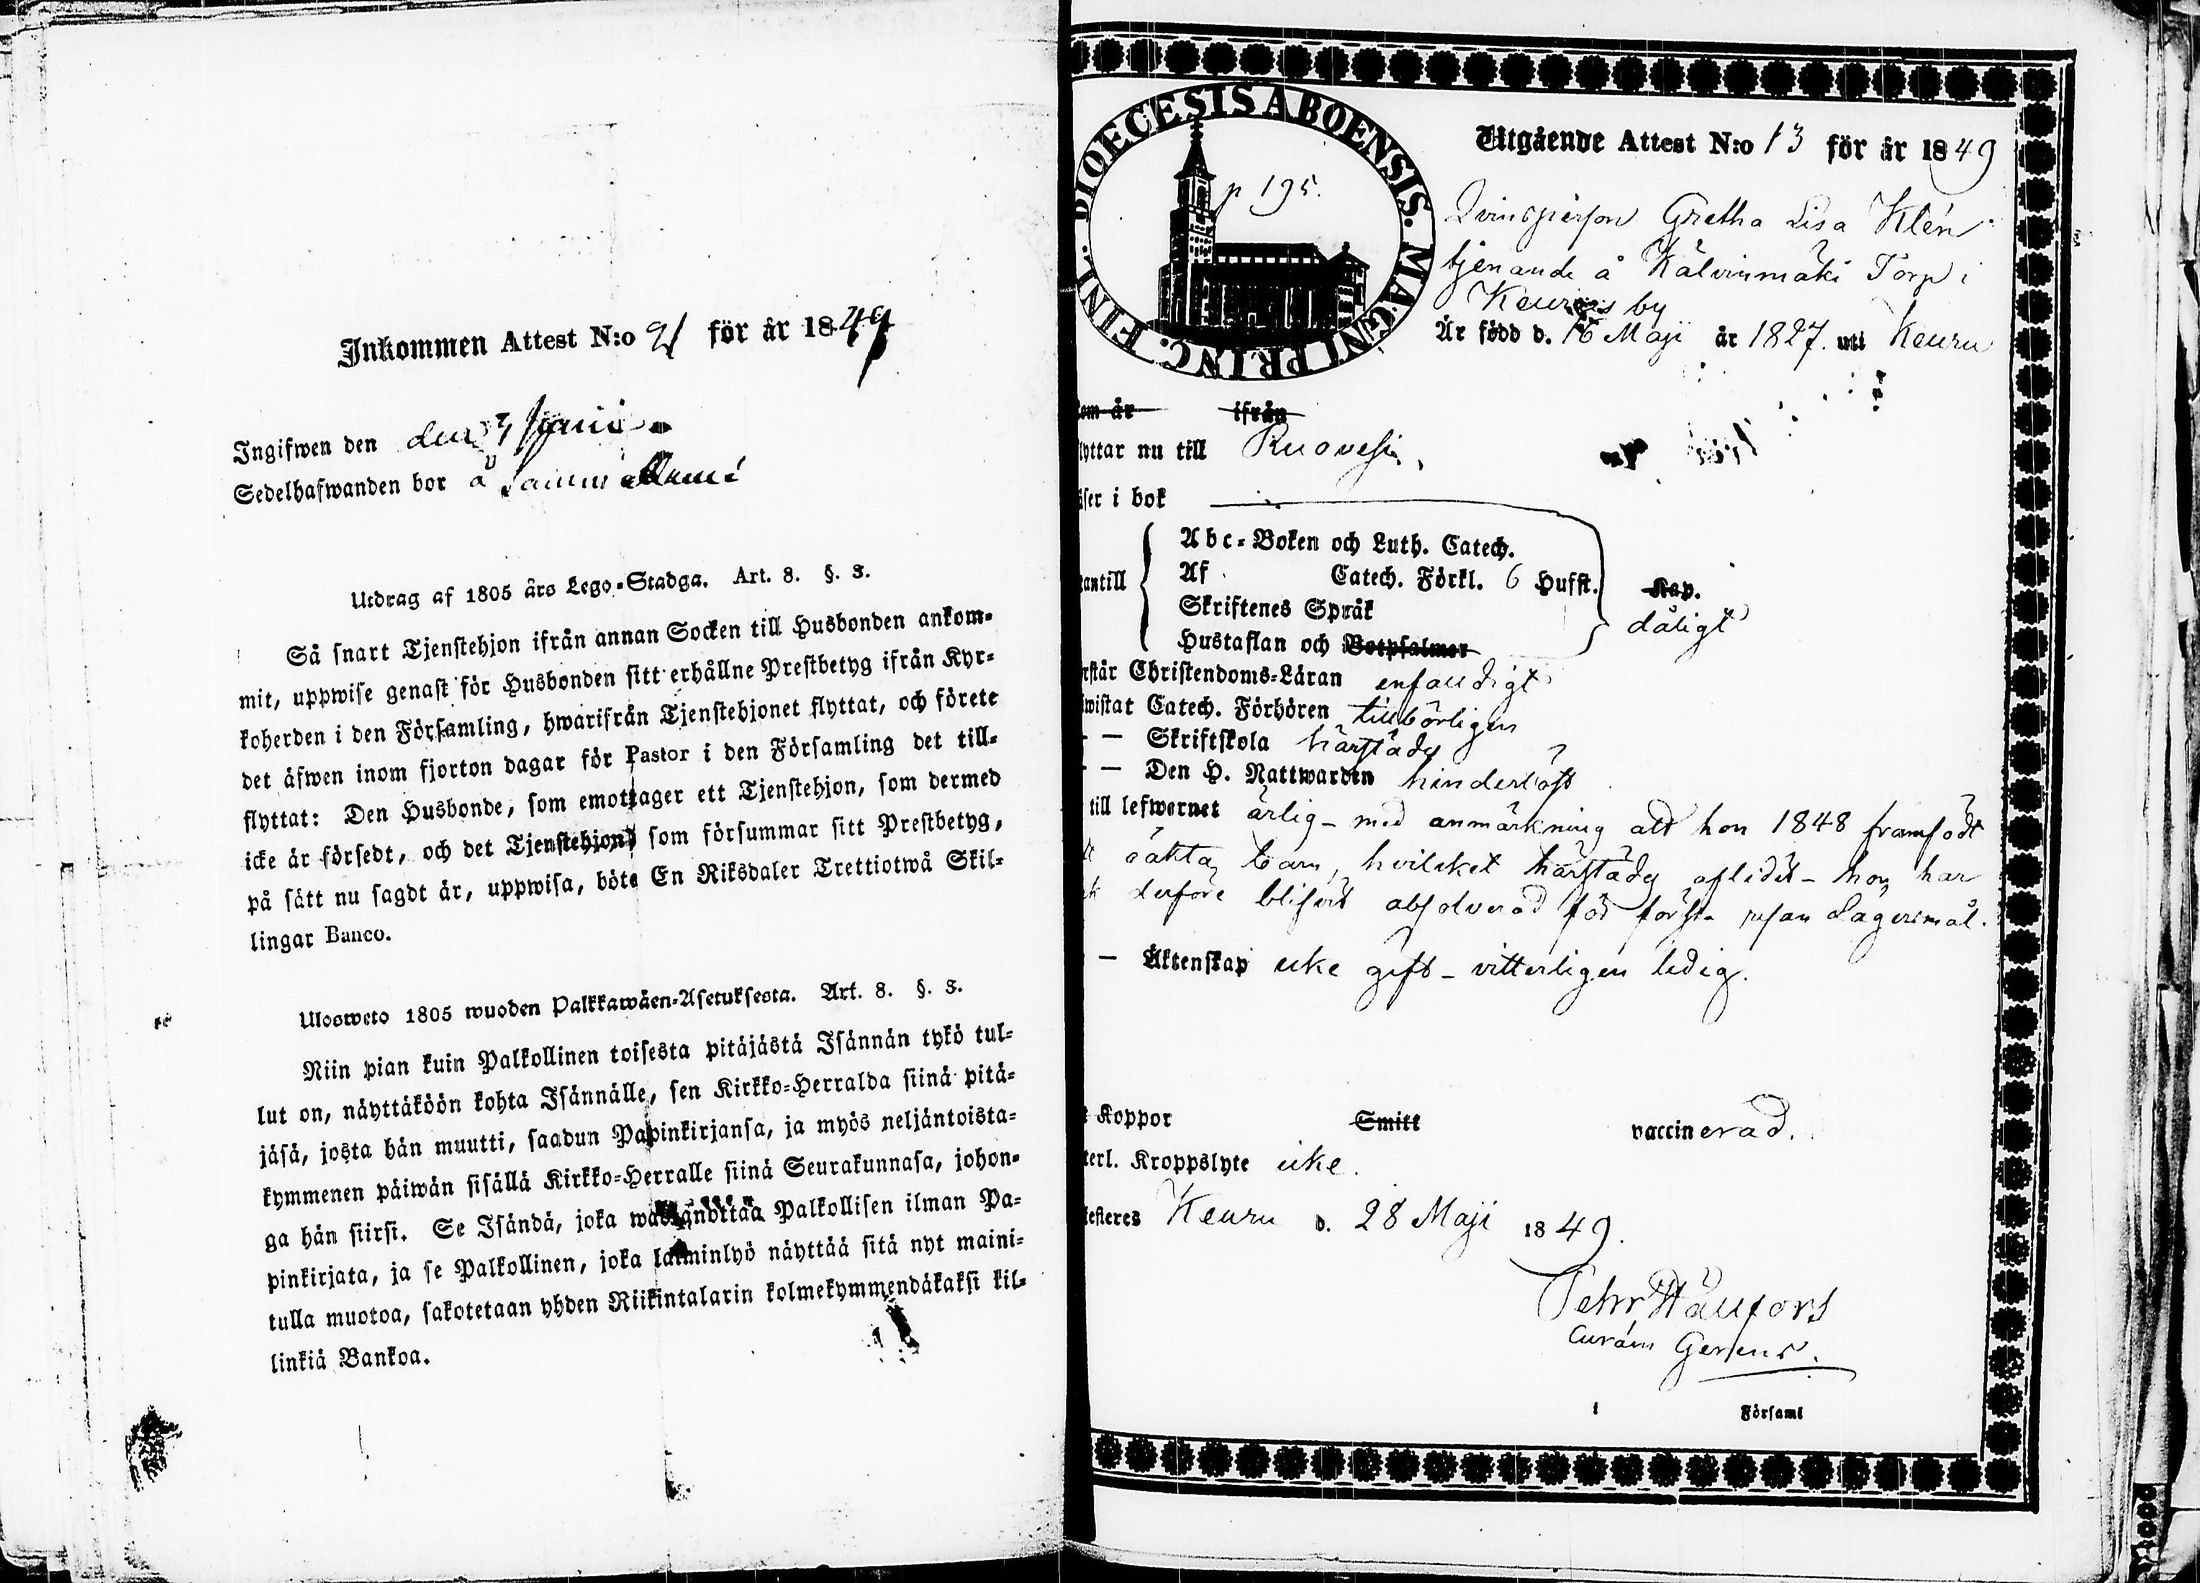 Inkommen Attest N:o 91 för år 1849
Ingifwen den den 3 Junii
Sedelhafwanden bor å
Utdrag af 1805 års Lego-Stadga. Art. 8. §. 3.
Så snart Tjenstehjon ifrån annan Socken till Husbonden ankom-
mit, uppwise genast för Husbonden sitt erhållne Prestbetyg ifrån Kyr-
koherden i den Församling, hwarifrån Tjenstehjonet flyttat, och förete
det äfwen inom fjorton dagar för Pastor i den Församling det till-
flyttat: Den Husbonde, som emottager ett Tjenstehjon, som dermed
icke är försedt, och det Tjenstehjon, som försummar sitt Prestbetyg,
på sätt nu sagdt är, uppwisa, böte En Riksdaler Trettiotwå Skil-
lingar Banco.
Ulosweto 1805 wuoden Palkkawäen-Asetuksesta. Art. 8. §. 3.
Niin pian kuin Palkollinen toisesta pitäjästä Isännän tykö tul-
lut on, näyttäköön kohta Isännälle, sen Kirkko-Herralda siinä pitä-
jäsä, josta hän muutti, saadun Papinkirjansa, ja myös neljäntoista-
kymmenen päiwän sisällä Kirkko-Herralle siinä Seurakunnasa, johon-
ga hän siirsi. Se Isändä, joka wastanottaa Palkollisen ilman Pa-
pinkirjata, ja se Palkollinen, joka laiminlyö näyttää sitä nyt maini-
tulla muotoa, sakotetaan yhden Riikintalarin kolmekymmendäkaksi kil-
linkiä Bankoa.
DIOECESIS ABOENSIS. MAGNI PRINC. FINL.
p 195.
Utgående Attest N:o 13 för år 1849
Qvinsperson Gretha Lisa Klén
tjenande å Kälvinmäki Torp i
Keuru by
Är född d. 16 Maji år 1827. uti Keuru
om år ifrån
lyttar nu till Ruovesi,
äser i bok
Abc-Boken och Luth. Catech.
antill Af Catech. Förkl. 6 Hufst. Kap.
Skriftenes Språk dåligt
Hustaflan och Botpsalmer
rstår Christendoms-Läran enfaldigt
wistat Catech. Förhören tillbörligen
— Skriftskola härstädes
— Den H. Nattwarden hinderlöst
till lefwernet ärlig – med anmärkning att hon 1848 framfödt
oäkta barn, hvilket härstädes aflidit – hon har
derföre blifvit absolverad för första resan Lägersmål.
— Äktenskap icke gift – vitterligen ledig.
Koppor Smitt vaccinerad.
terl. Kroppslyte icke.
esteres Keuru d. 28 Maji 1849.
Pehr Hällfors
Curam Gerens.
i Församl